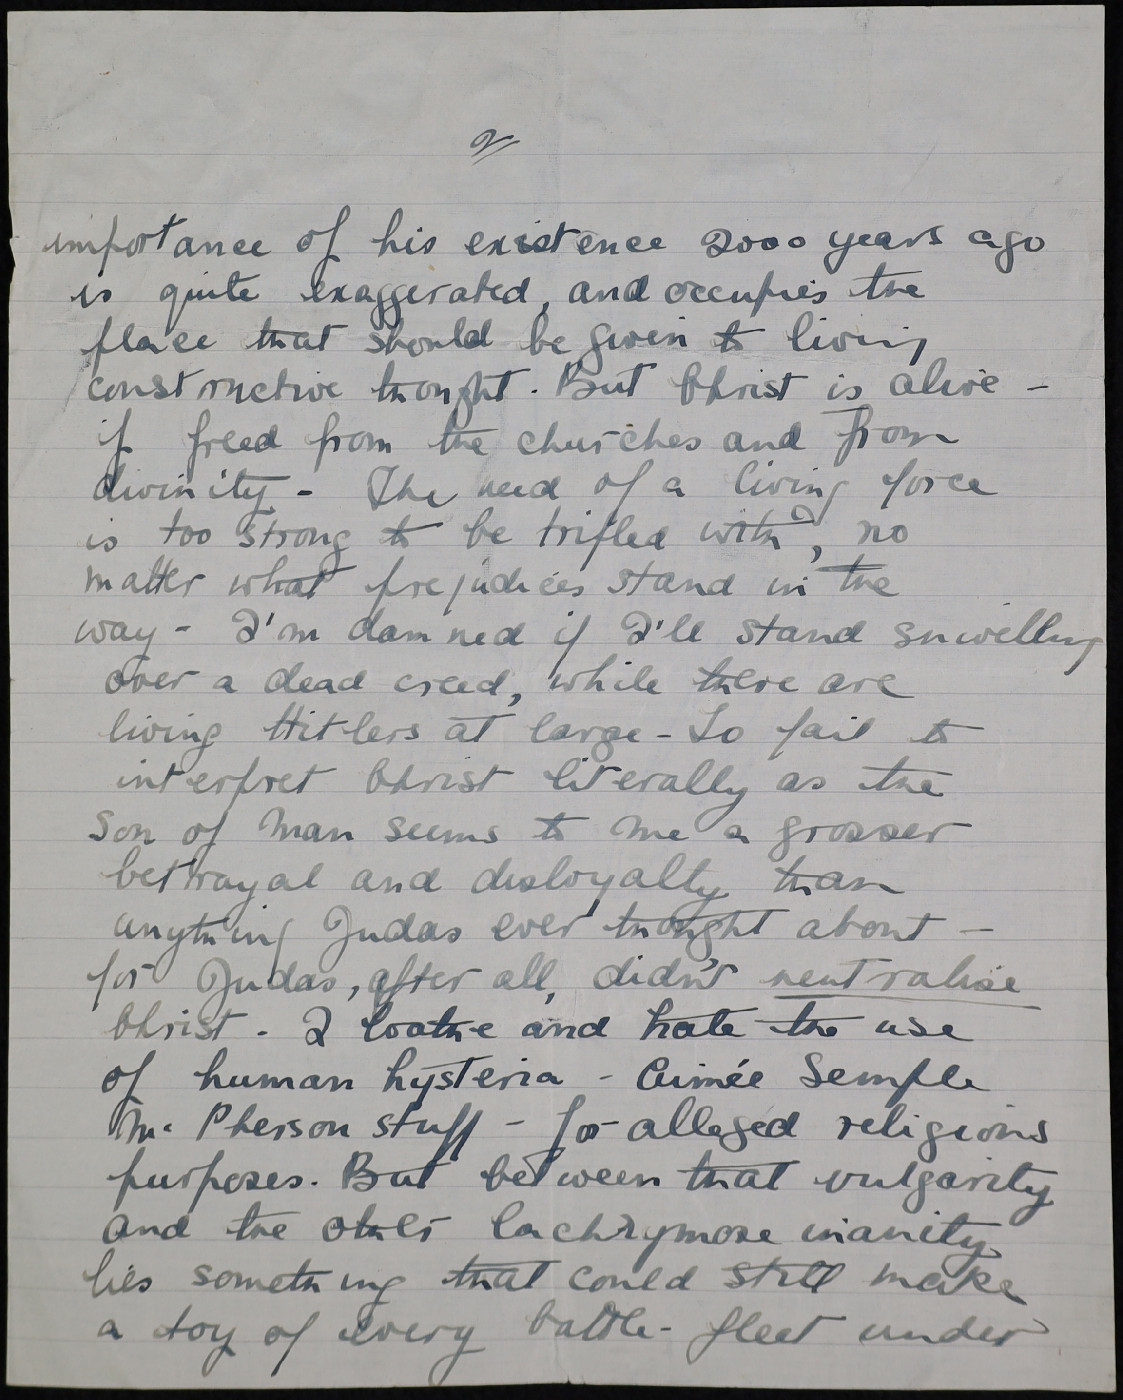 2/
importance of his existence 2000 years ago
is quite exaggerated, and occupies the
place that should be given to living
constructive thought. But Christ is alive -
if freed from the churches and from
divinity - The need of a living force
is too strong to be trifled with, no
matter what prejudices stand in the
way - I'm damned if I'll stand snivelling
over a dead creed, while there are
living Hitlers at large - To fail to
interpret Christ literally as the
Son of Man seems to me a grosser
betrayal and disloyalty than
anything Judas ever thought about -
for Judas, after all, didn't neutralise
Christ. I loathe and hate the use
of human hysteria - Aimée Semple
Mc Pherson stuff - for alleged religious
purposes. But between that vulgarity
and the other lachrymose inanity
lies something that could still make
a toy of every battle-fleet under